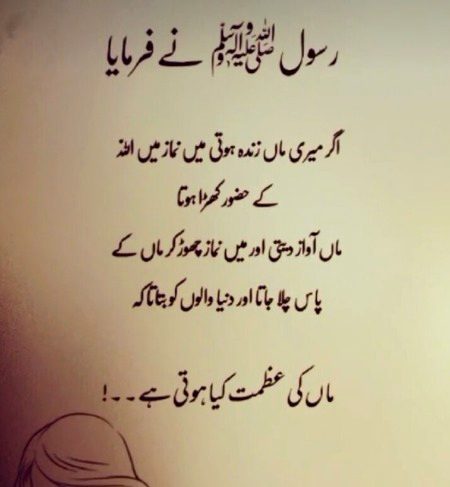 رسول ﷺ نے فرمایا
اگر میری ماں زندہ ہوتی میں نماز میں اللہ
کے حضور کھڑا ہوتا
ماں آواز دیتی اور میں نماز چھوڑ کر ماں کے
پاس چلا جاتا اور دنیا والوں کو بتاتا کہ
ماں کی عظمت کیا ہوتی ہے۔۔!